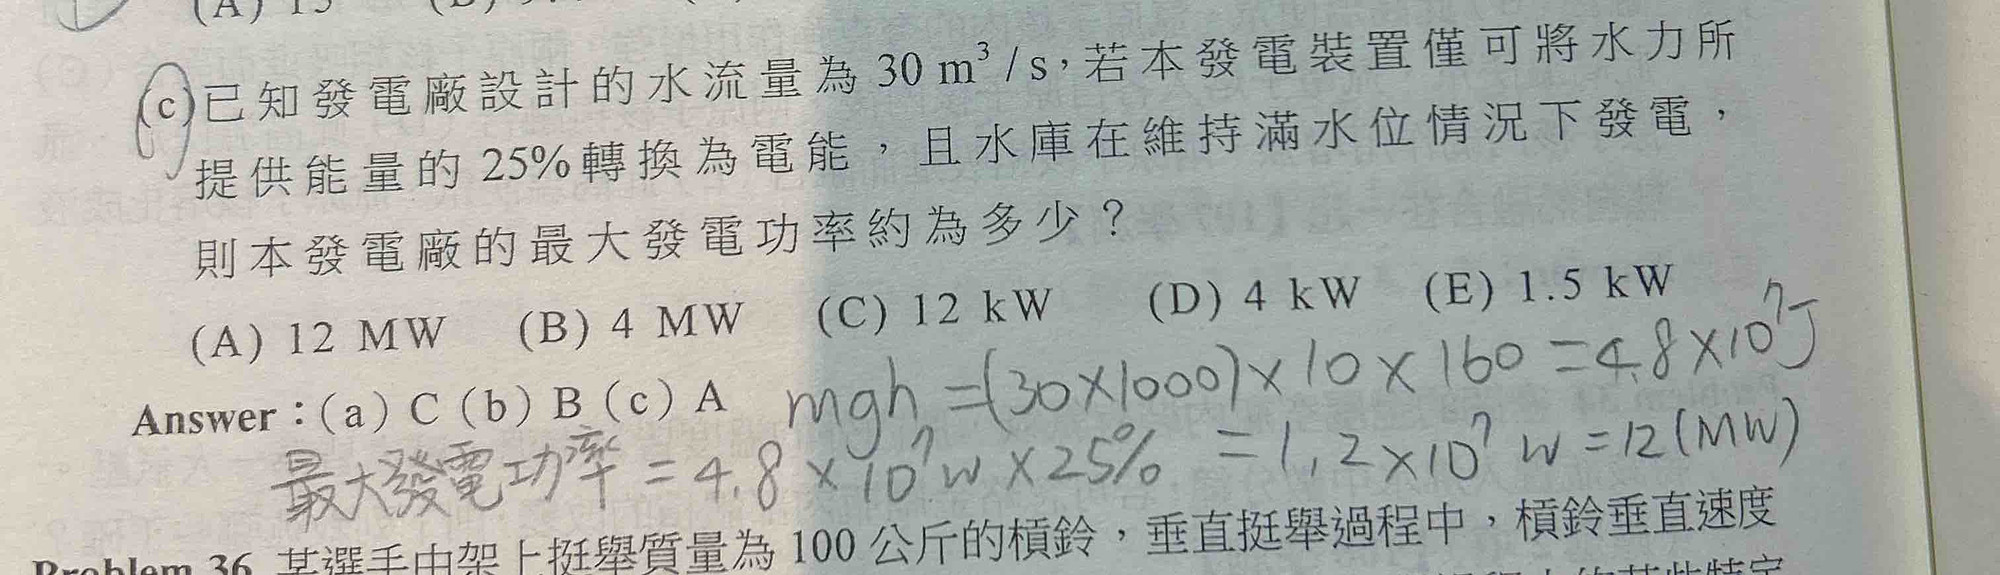 (A) 15
(c)已知發電廠設計的水流量為 30 m³/s，若本發電裝置僅可將水力所
提供能量的 25%轉換為電能，且水庫在維持滿水位情況下發電，
則本發電廠的最大發電功率約為多少？
(A) 12 MW (B) 4 MW (C) 12 kW (D) 4 kW (E) 1.5 kW
Answer：(a) C (b) B (c) A
mgh =(30×1000)×10×160 =4.8×10⁷J
最大發電功率 = 4.8×10⁷W×25% = 1.2×10⁷W =12(MW)
Problem 36 某選手由架上挺舉質量為 100 公斤的槓鈴，垂直挺舉過程中，槓鈴垂直速度